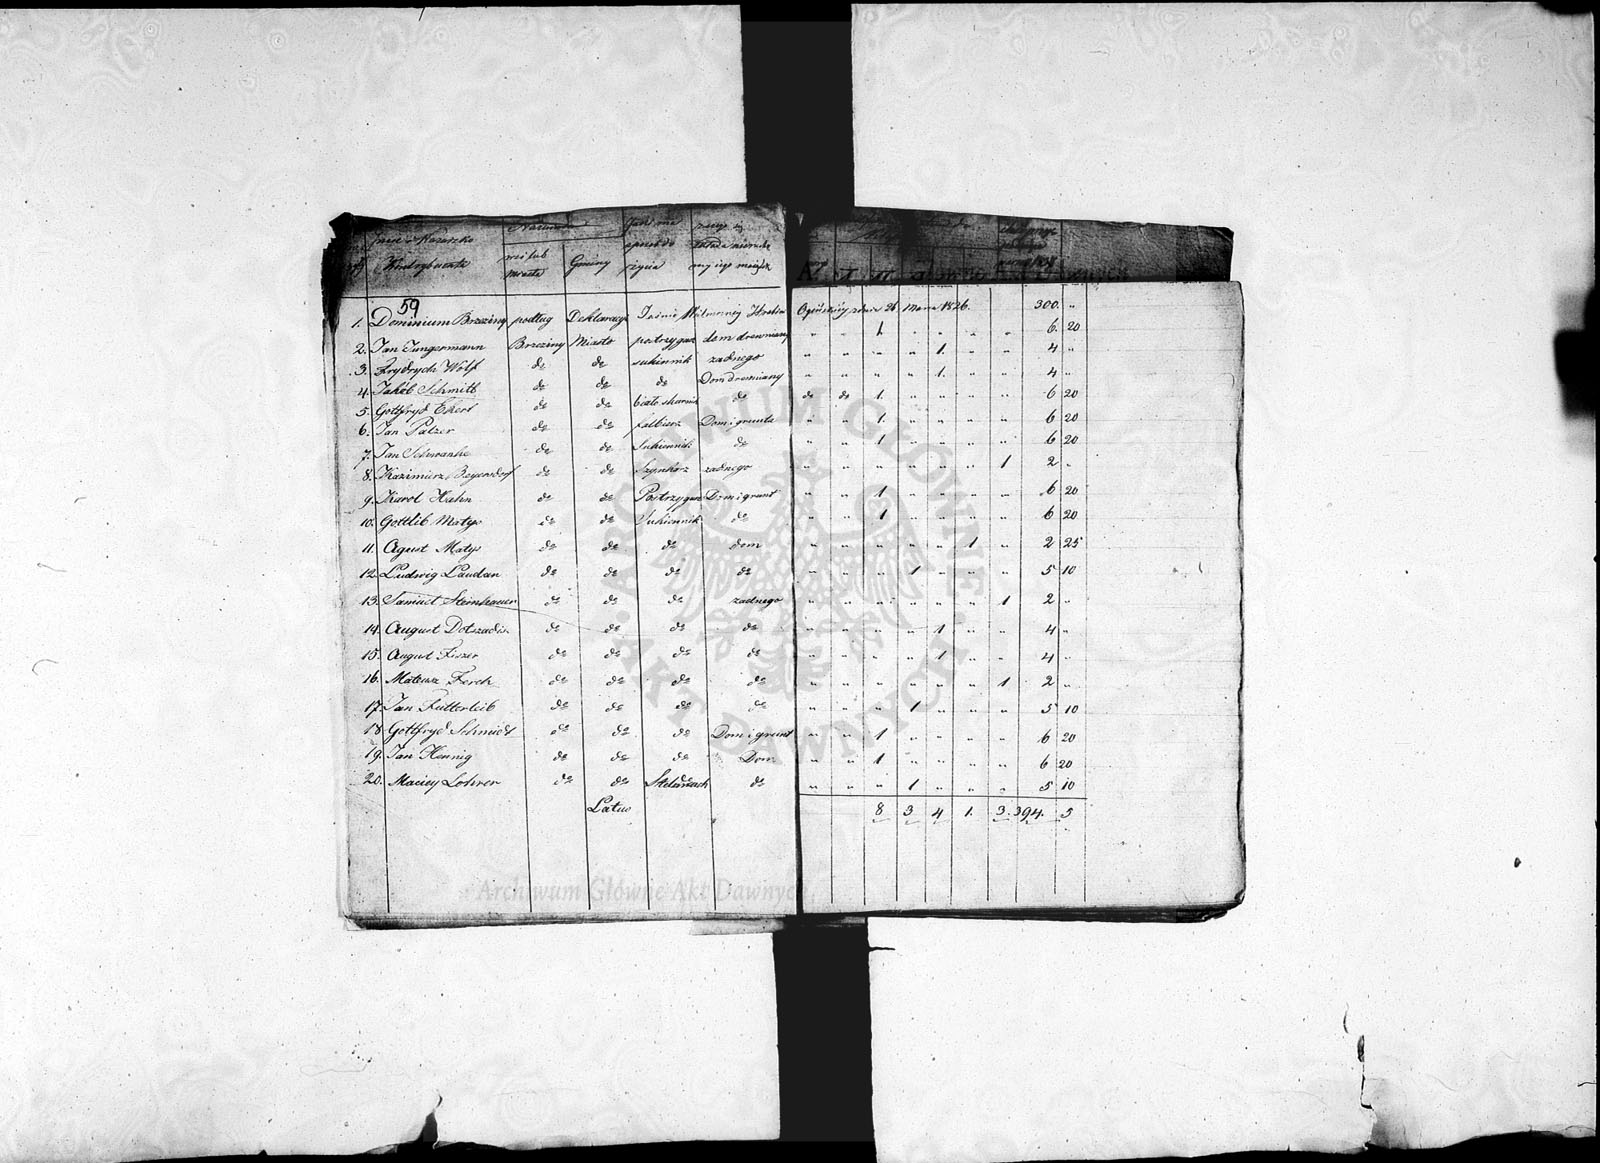 Imie i Nazwisko
Kontrybuenta
Nazwisko
wsi lub
Miasta
Gminy
sposób do
życia
59
1. Dominium Brzeziny podług Deklaracyi Jaśnie Wielmożnej Hrabin Ogińskiey zdnia 26 Marca 1826. 300. "
2. Jan Jungermann Brzeziny Miasto postrzygacz dom drewniany " " 1 " " " " 6. 20
3. Frydrych Wolf do do sukiennik żadnego " " " " 1. " " 4 "
4. Jakób Schmitt do do do Dom drewniany " " " " 1. " " 4 "
5. Gottfryd Ekert do do biało skurnik do do do 1. " " " " 6 20
6. Jan Palzer do do falbierz Dom i grunta " " 1. " " " " 6 20
7. Jan Schwanke do do Sukiennik do " " 1 " " " " 6 20
8. Kazimierz Beyersdorf do do Szynkarz żadnego " " " " " " 1 2 "
9. Karol Hahn do do Postrzygacz Dom i grunt " " 1 " " " " 6 20
10. Gottlib Matys do do Sukiennik do " " 1 " " " " 6 20
11. Agust Matys do do do dom " " " " " 1 " 2 25
12. Ludwig Laudan do do do do " " " 1 " " " 5 10
13. Samuel Steinhauer do do do żadnego " " " " " " 1 2 "
14. August Dotszadis do do do do " " " " 1 " " 4 "
15. August Fiszer do do do do " " " " 1 " " 4 "
16. Mateusz Ferch do do do do " " " " " " 1 2 "
17. Jan Futterleib do do do do " " " 1 " " " 5 10
18. Gottfryd Schmidt do do do Dom i grunt " " 1 " " " " 6 20
19. Jan Hennig do do do Dom " " 1 " " " " 6 20
20. Maciey Lohrer do do Stelmach do " " " 1 " " " 5 10
Latus 8 3 4 1. 3. 394. 5
ARCHIWUM GŁÓWNE AKT DAWNYCH
Archiwum Główne Akt Dawnych